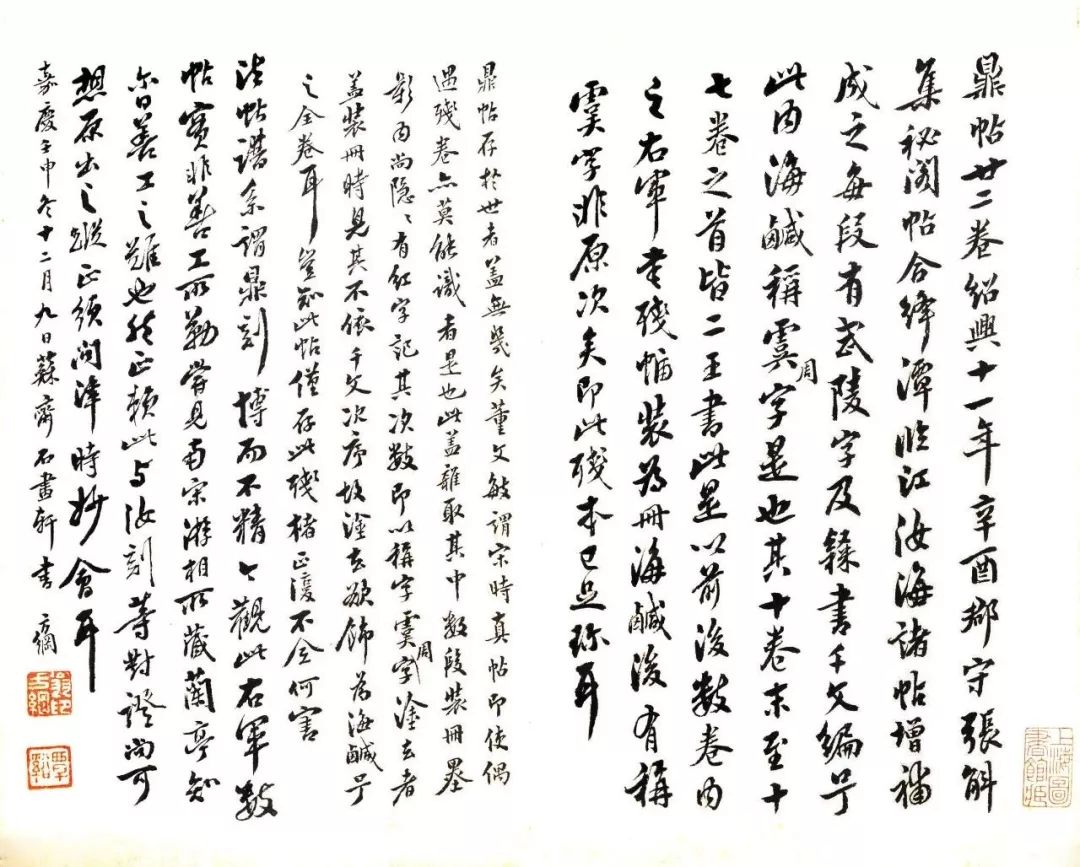 鼎帖廿二卷紹興十一年辛酉郡守張斛
集秘閣帖合絳潭臨江汝海諸帖增補
成之每段有武陵字及隸書千文編号
此內海鹹稱虞周字是也其十卷末至十
七卷之首皆二王書此是以前後數卷內
之右軍書殘幅裝為冊海鹹後有稱
虞字非原次矣即此殘本已足珎耳
鼎帖存於世者蓋無幾矣董文敏謂宋時真帖即使偶
遇殘卷亦莫能識者是也此蓋雜取其中數段裝冊墨
影內尚隱〻有紅字記其次數即以稱字虞周字塗去者
蓋裝冊時見其不依千文次序故塗去欲飾為海鹹号
之全卷耳豈知此帖僅存此殘楮正復不全何害
法帖譜系謂鼎刻博而不精今觀此右軍數
帖實非善工所勒嘗見南宋游相所藏蘭亭知
尔日善工之難也然正賴此与汝刻等對證尚可
想原出之蹤正須問津時妙會耳
嘉慶壬申冬十二月九日蘇齋石畫軒書 方綱
翁方綱印
覃谿
上海圖書館藏